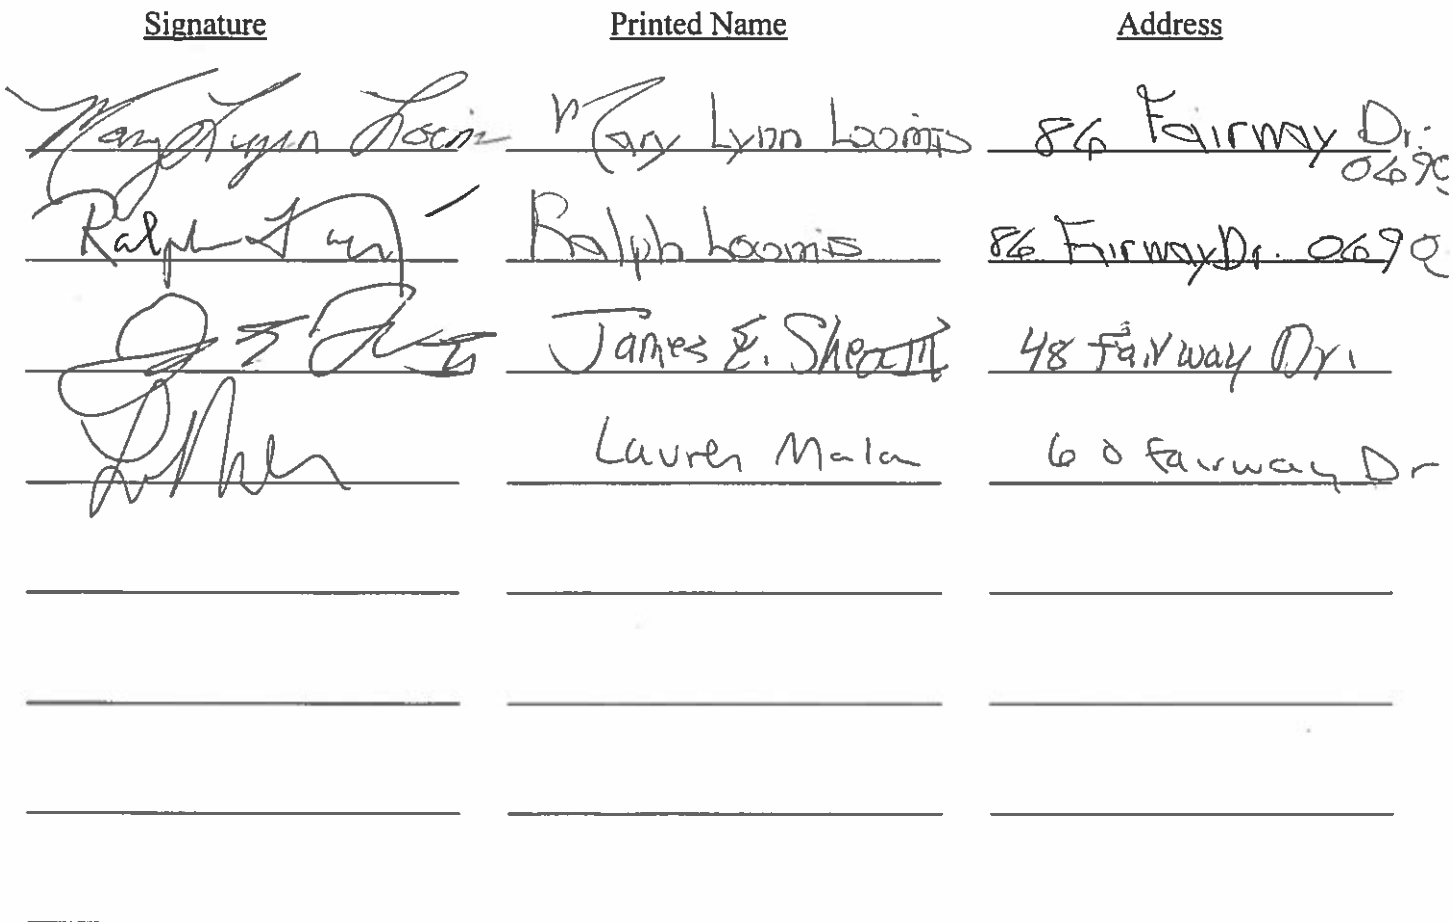 Signature Printed Name Address
Mary Lynn Loomis Mary Lynn Loomis 86 Fairway Dr.
069
Ralph Ralph Loomis 86 Fairway Dr. 069
James E. Shea III 48 Fairway Dr.
Lauren Mala 60 Fairway Dr